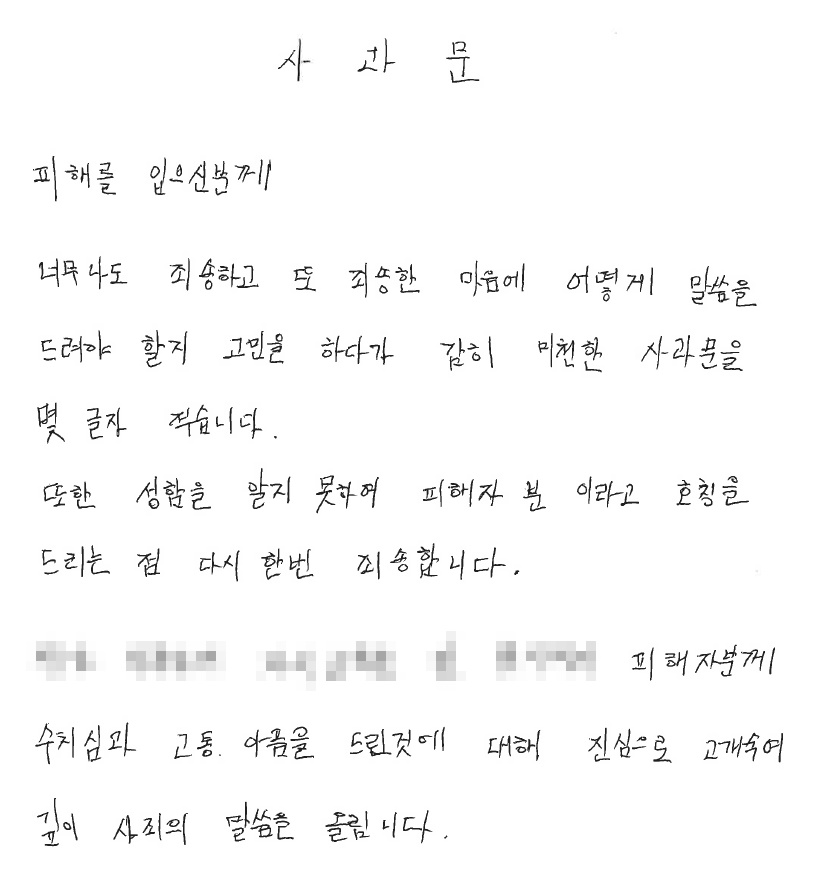 사 과 문
피해를 입으신분께
너무나도 죄송하고 또 죄송한 마음에 어떻게 말씀을
드려야 할지 고민을 하다가 감히 미천한 사과문을
몇 글자 적습니다.
또한 성함을 알지 못하여 피해자 분 이라고 호칭을
드리는 점 다시 한번 죄송합니다.
피해자분께
수치심과 고통. 아픔을 드린것에 대해 진심으로 고개숙여
깊이 사죄의 말씀을 올립니다.